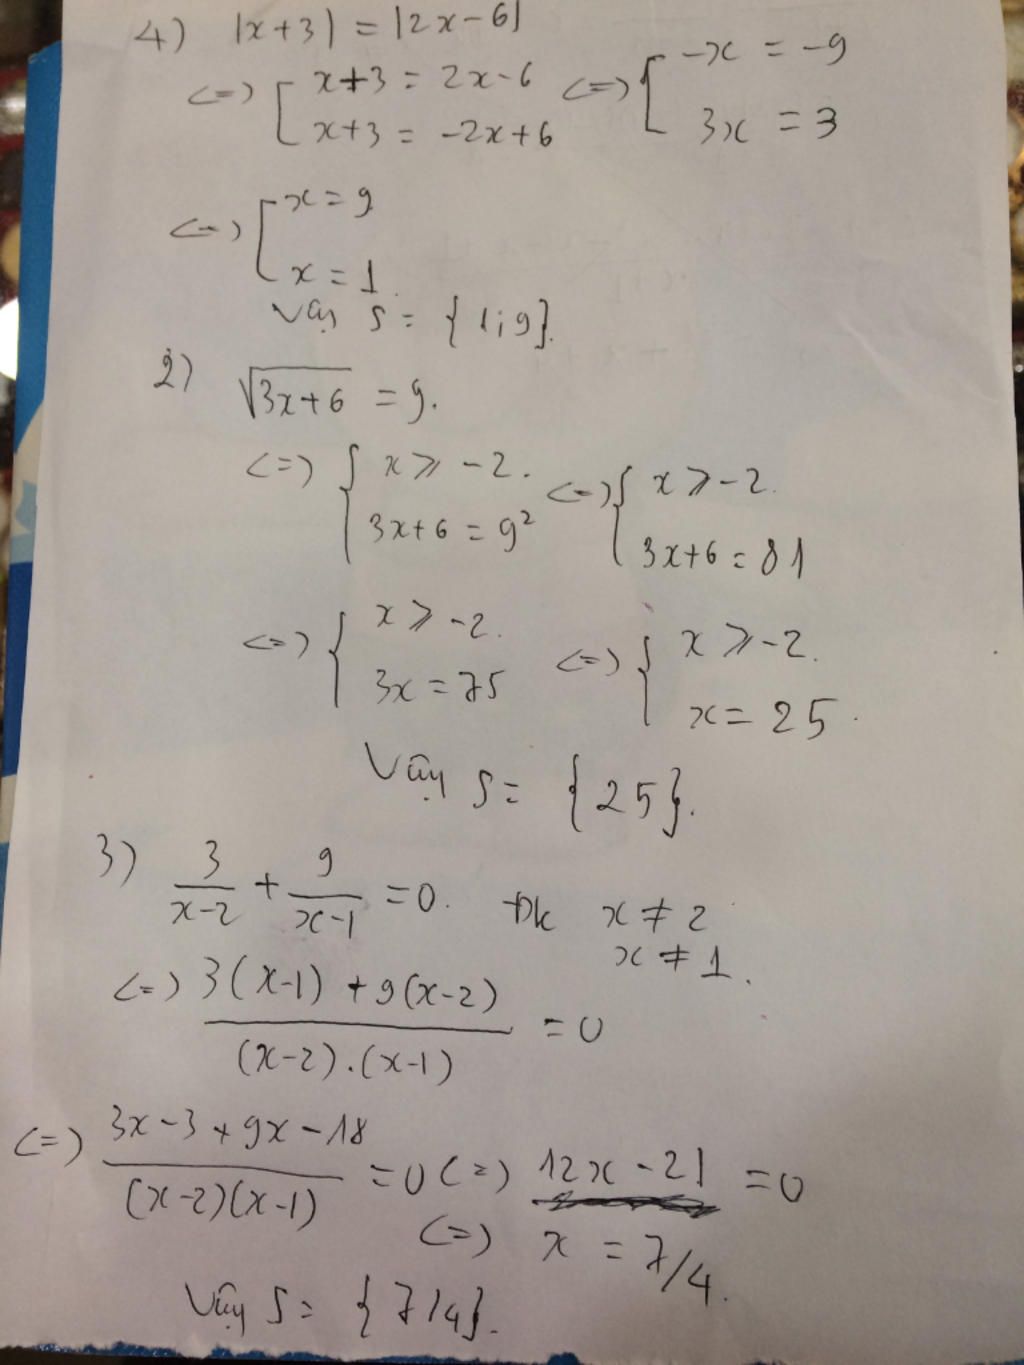 4) |x+3| = |2x-6|
<=> [ x+3 = 2x-6 <=> [ -x = -9
x+3 = -2x+6 3x = 3
<=> [ x = 9
x = 1.
Vậy S = {1;9}.
2) √3x+6 = 9.
<=> { x ⩾ -2. <=> { x ⩾ -2.
3x+6 = 9² 3x+6 = 81
<=> { x ⩾ -2. <=> { x ⩾ -2.
3x = 75 x = 25.
Vậy S = {25}.
3) 3/(x-2) + 9/(x-1) = 0. Đk x ≠ 2
x ≠ 1.
<=> 3(x-1) + 9(x-2) = 0
(x-2).(x-1)
<=> 3x-3+9x-18 = 0 <=> 12x-21 = 0
(x-2)(x-1)
<=> x = 7/4.
Vậy S = {7/4}.